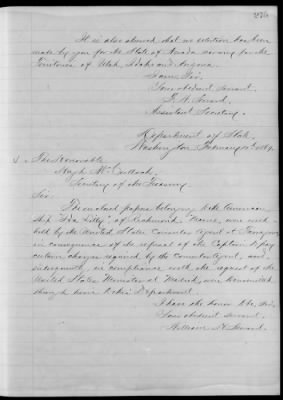 It is also observed, that no selection has been
made by you for the State of Nevada nor any for the
Territories of Utah, Idaho and Arizona.
I am Sir,
Your obedient servant.
F. W. Seward
Assistant Secretary.
Department of State,
Washington February
The Honorable
Hugh McCulloch,
Secretary of the Treasury.
Sir:
The enclosed papers belonging to the American
ship "Ida Lilly," of Richmond Maine, were with-
held by the United States Consular Agent at
in consequence of the refusal of the Captain to pay
certain charges required by the Consular Agent, and
subsequently, in compliance with the request of the
United States Minister at Madrid, were transmitted
through him to this Department.
I have the honor &c. Sir,
Your obedient servant.
William H. Seward.